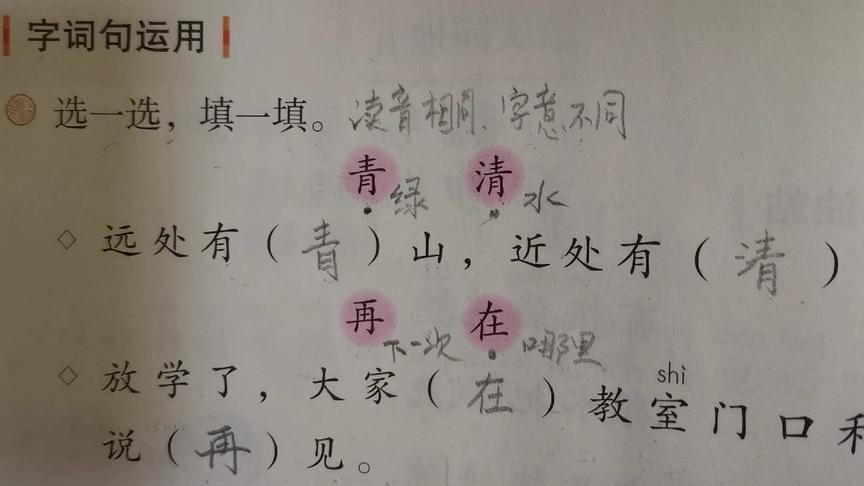 字词句运用
选一选，填一填。读音相同、字意不同
青 清
绿 水
远处有（青）山，近处有（清）
再 在
下一次 哪里
shì
放学了，大家（在）教室门口和
说（再）见。